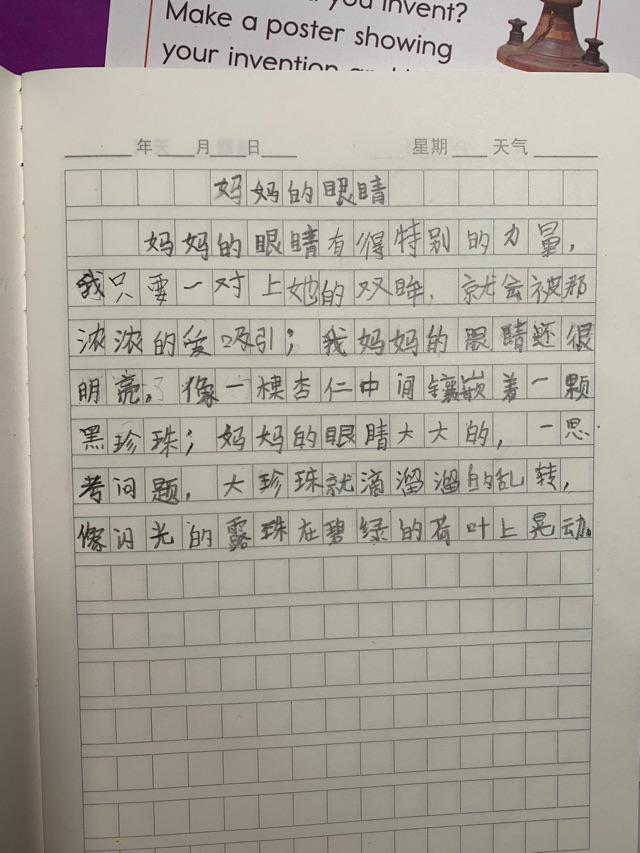 you invent?
Make a poster showing
your invention
年 月 日 星期 天气
妈妈的眼睛
妈妈的眼睛有得特别的力量，
我只要一对上她的双眸，就会被那
浓浓的爱吸引；我妈妈的眼睛还很
明亮。像一棵杏仁中间镶嵌着一颗
黑珍珠；妈妈的眼睛大大的，一思
考问题，大珍珠就滴溜溜的乱转，
像闪光的露珠在碧绿的荷叶上晃动。